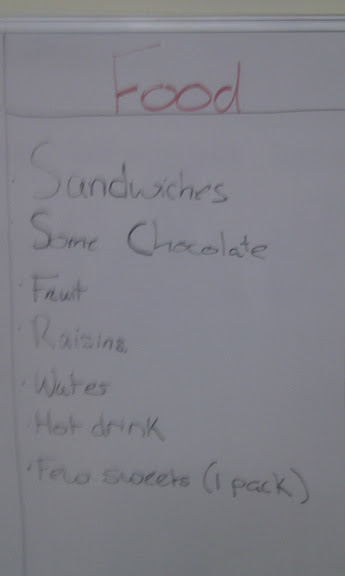 Food
· Sandwiches
Some Chocolate
· Fruit
· Raisins
· Water
· Hot drink
· Few sweets (1 pack)